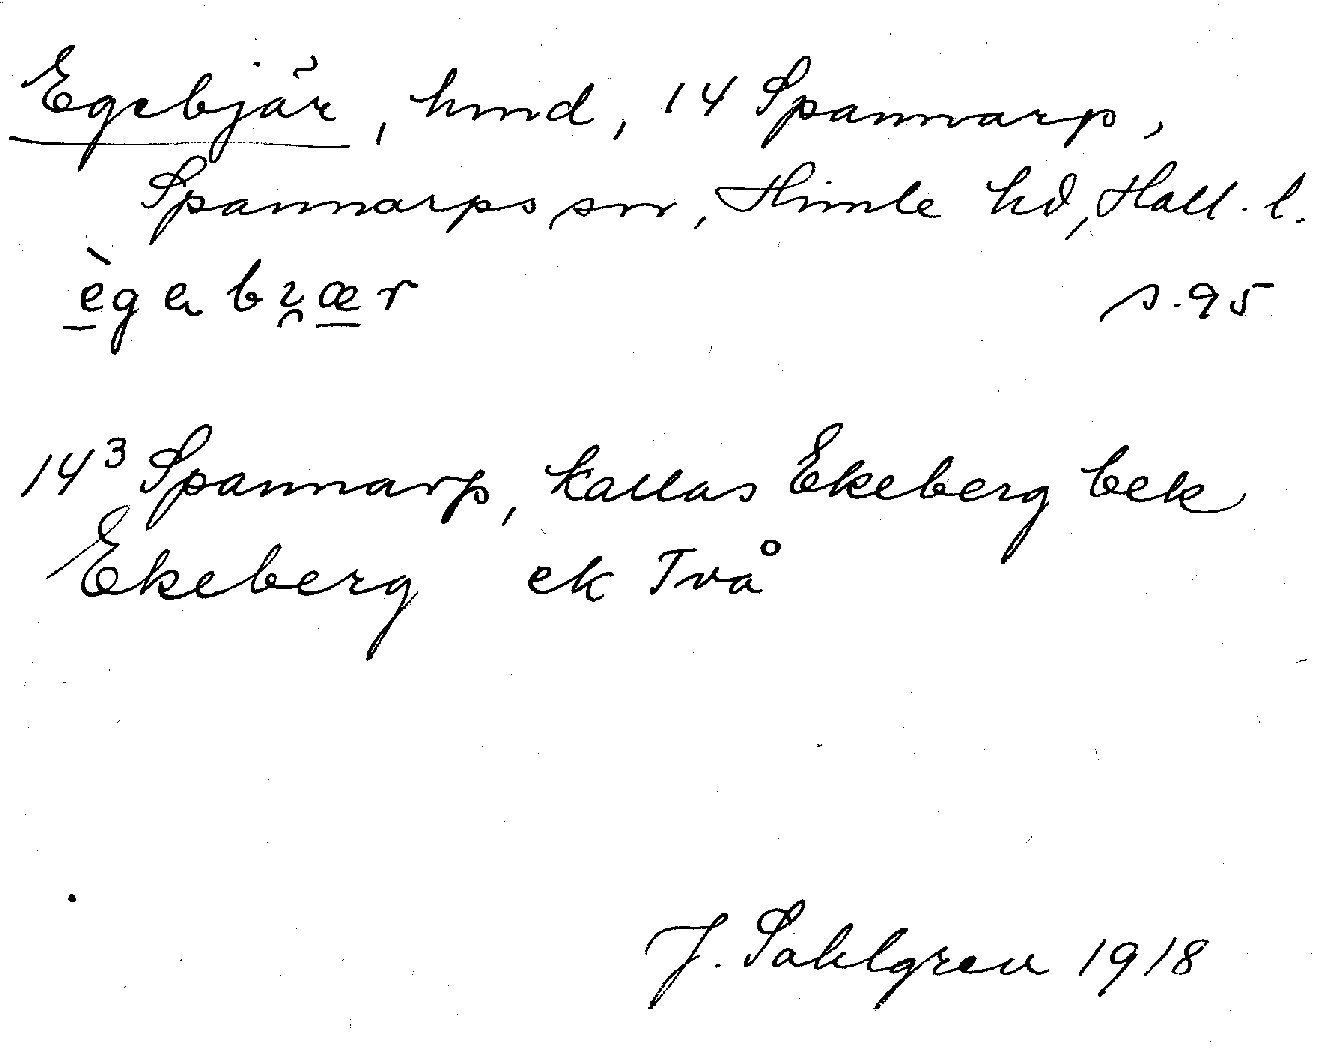 Egebjär, hmd, 14 Spannarp,
Spannarps sn, Himle hd, Hall. l.
ègabɿær s. 95
14³ Spannarp, kallas Ekeberg bek
Ekeberg ek Två
J. Sahlgren 1918